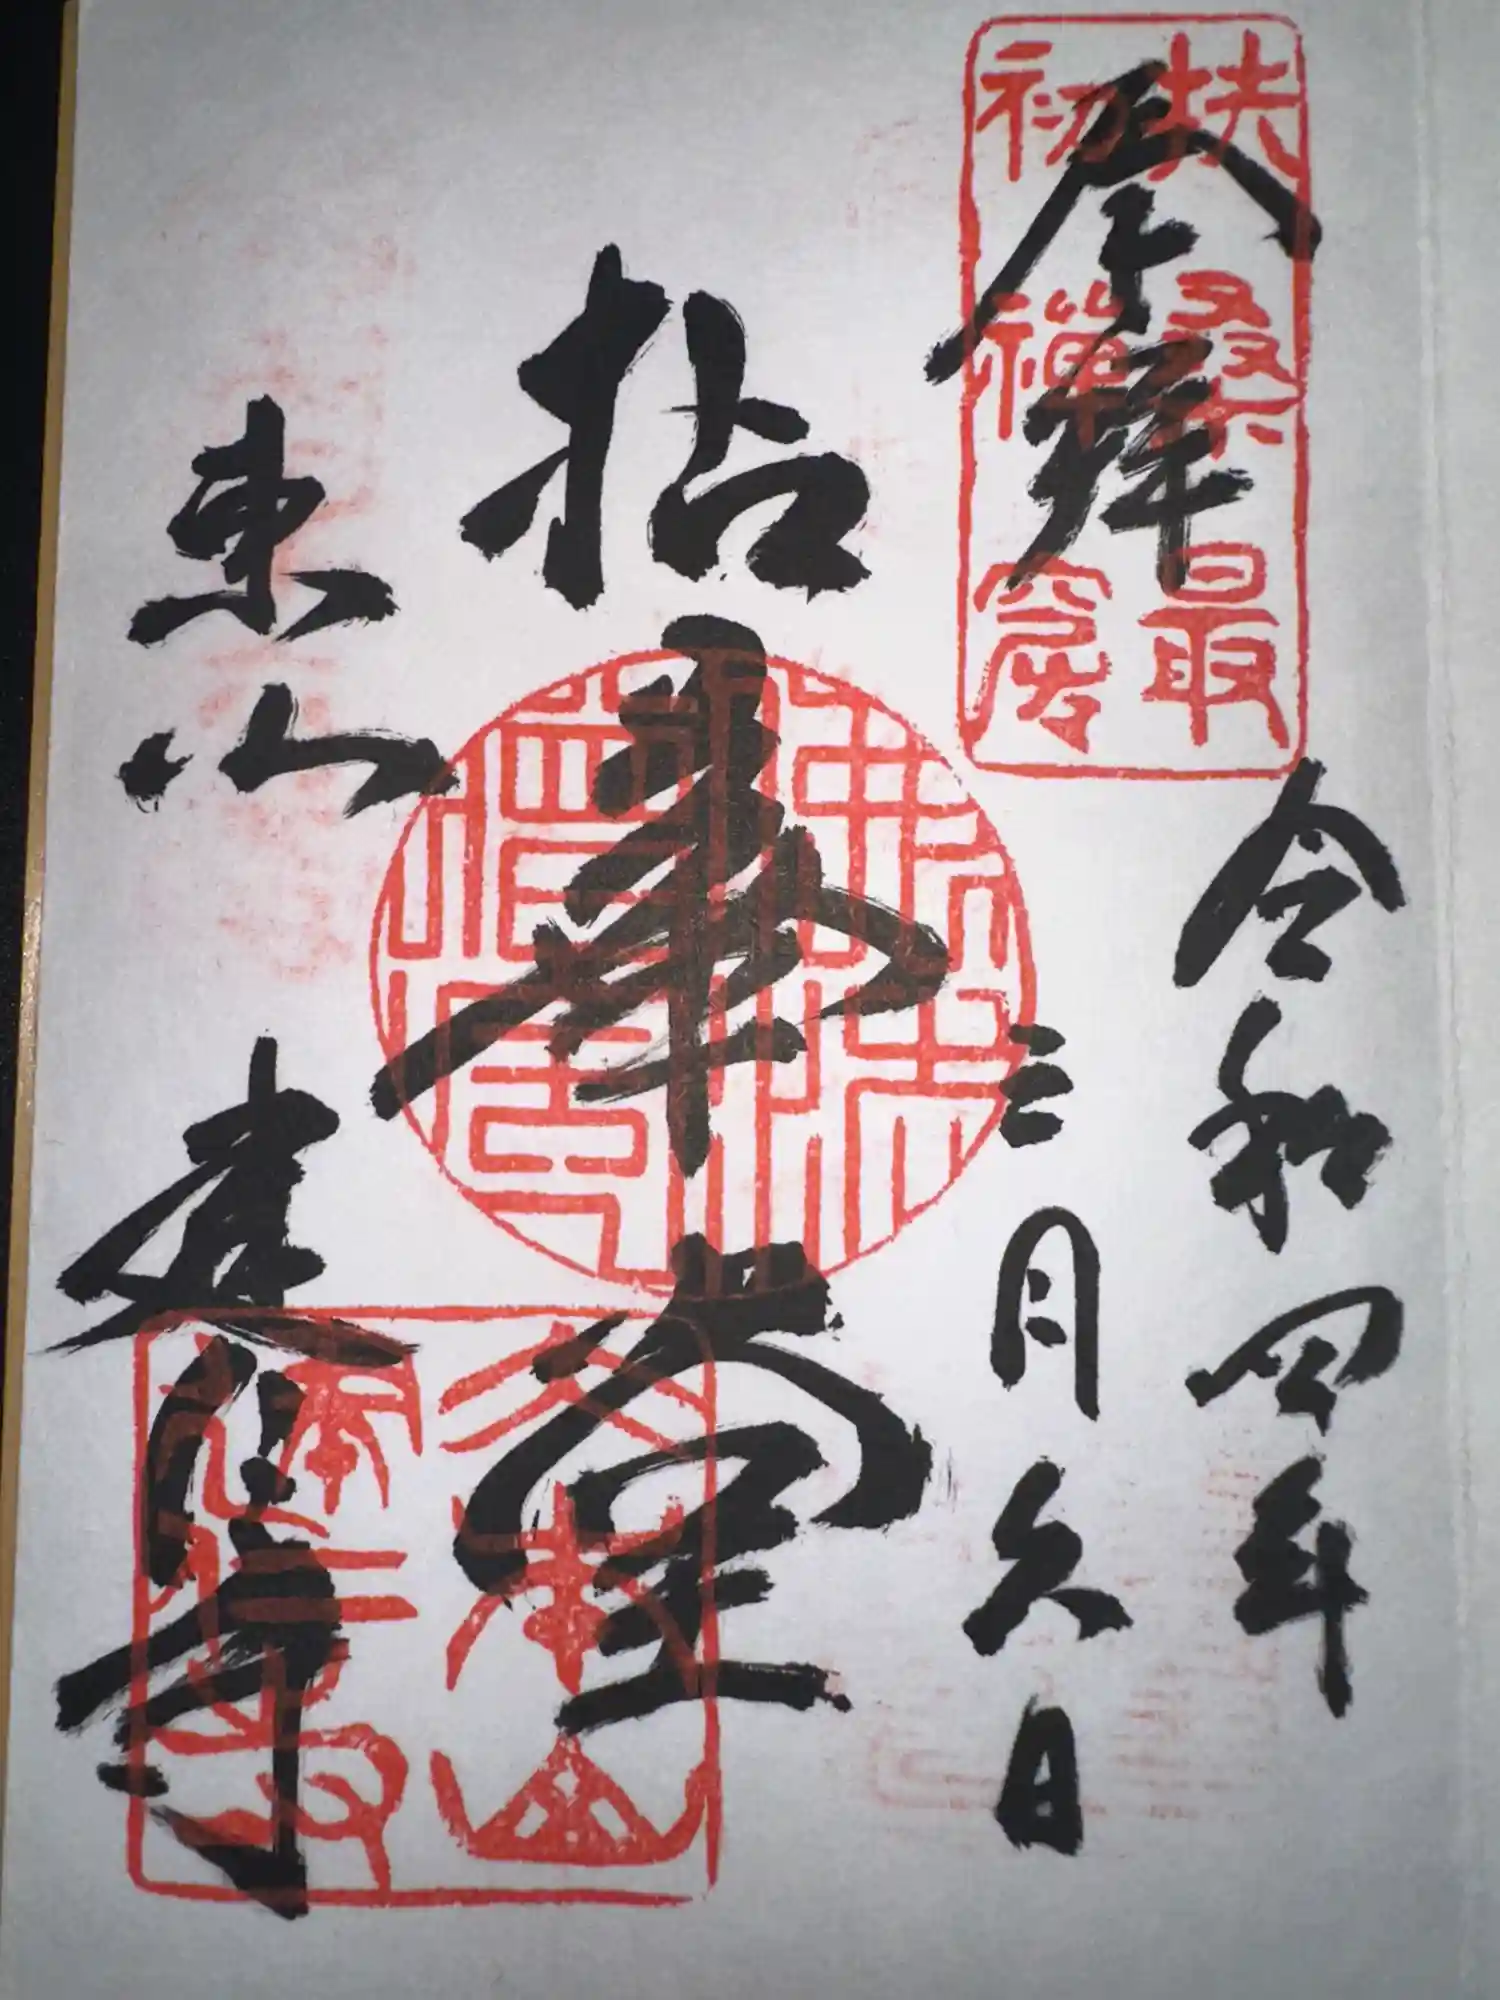 奉拝
扶桑最
初禅窟
令和四年
三月六日
拈華堂
東山
建仁寺
大本山
建仁寺